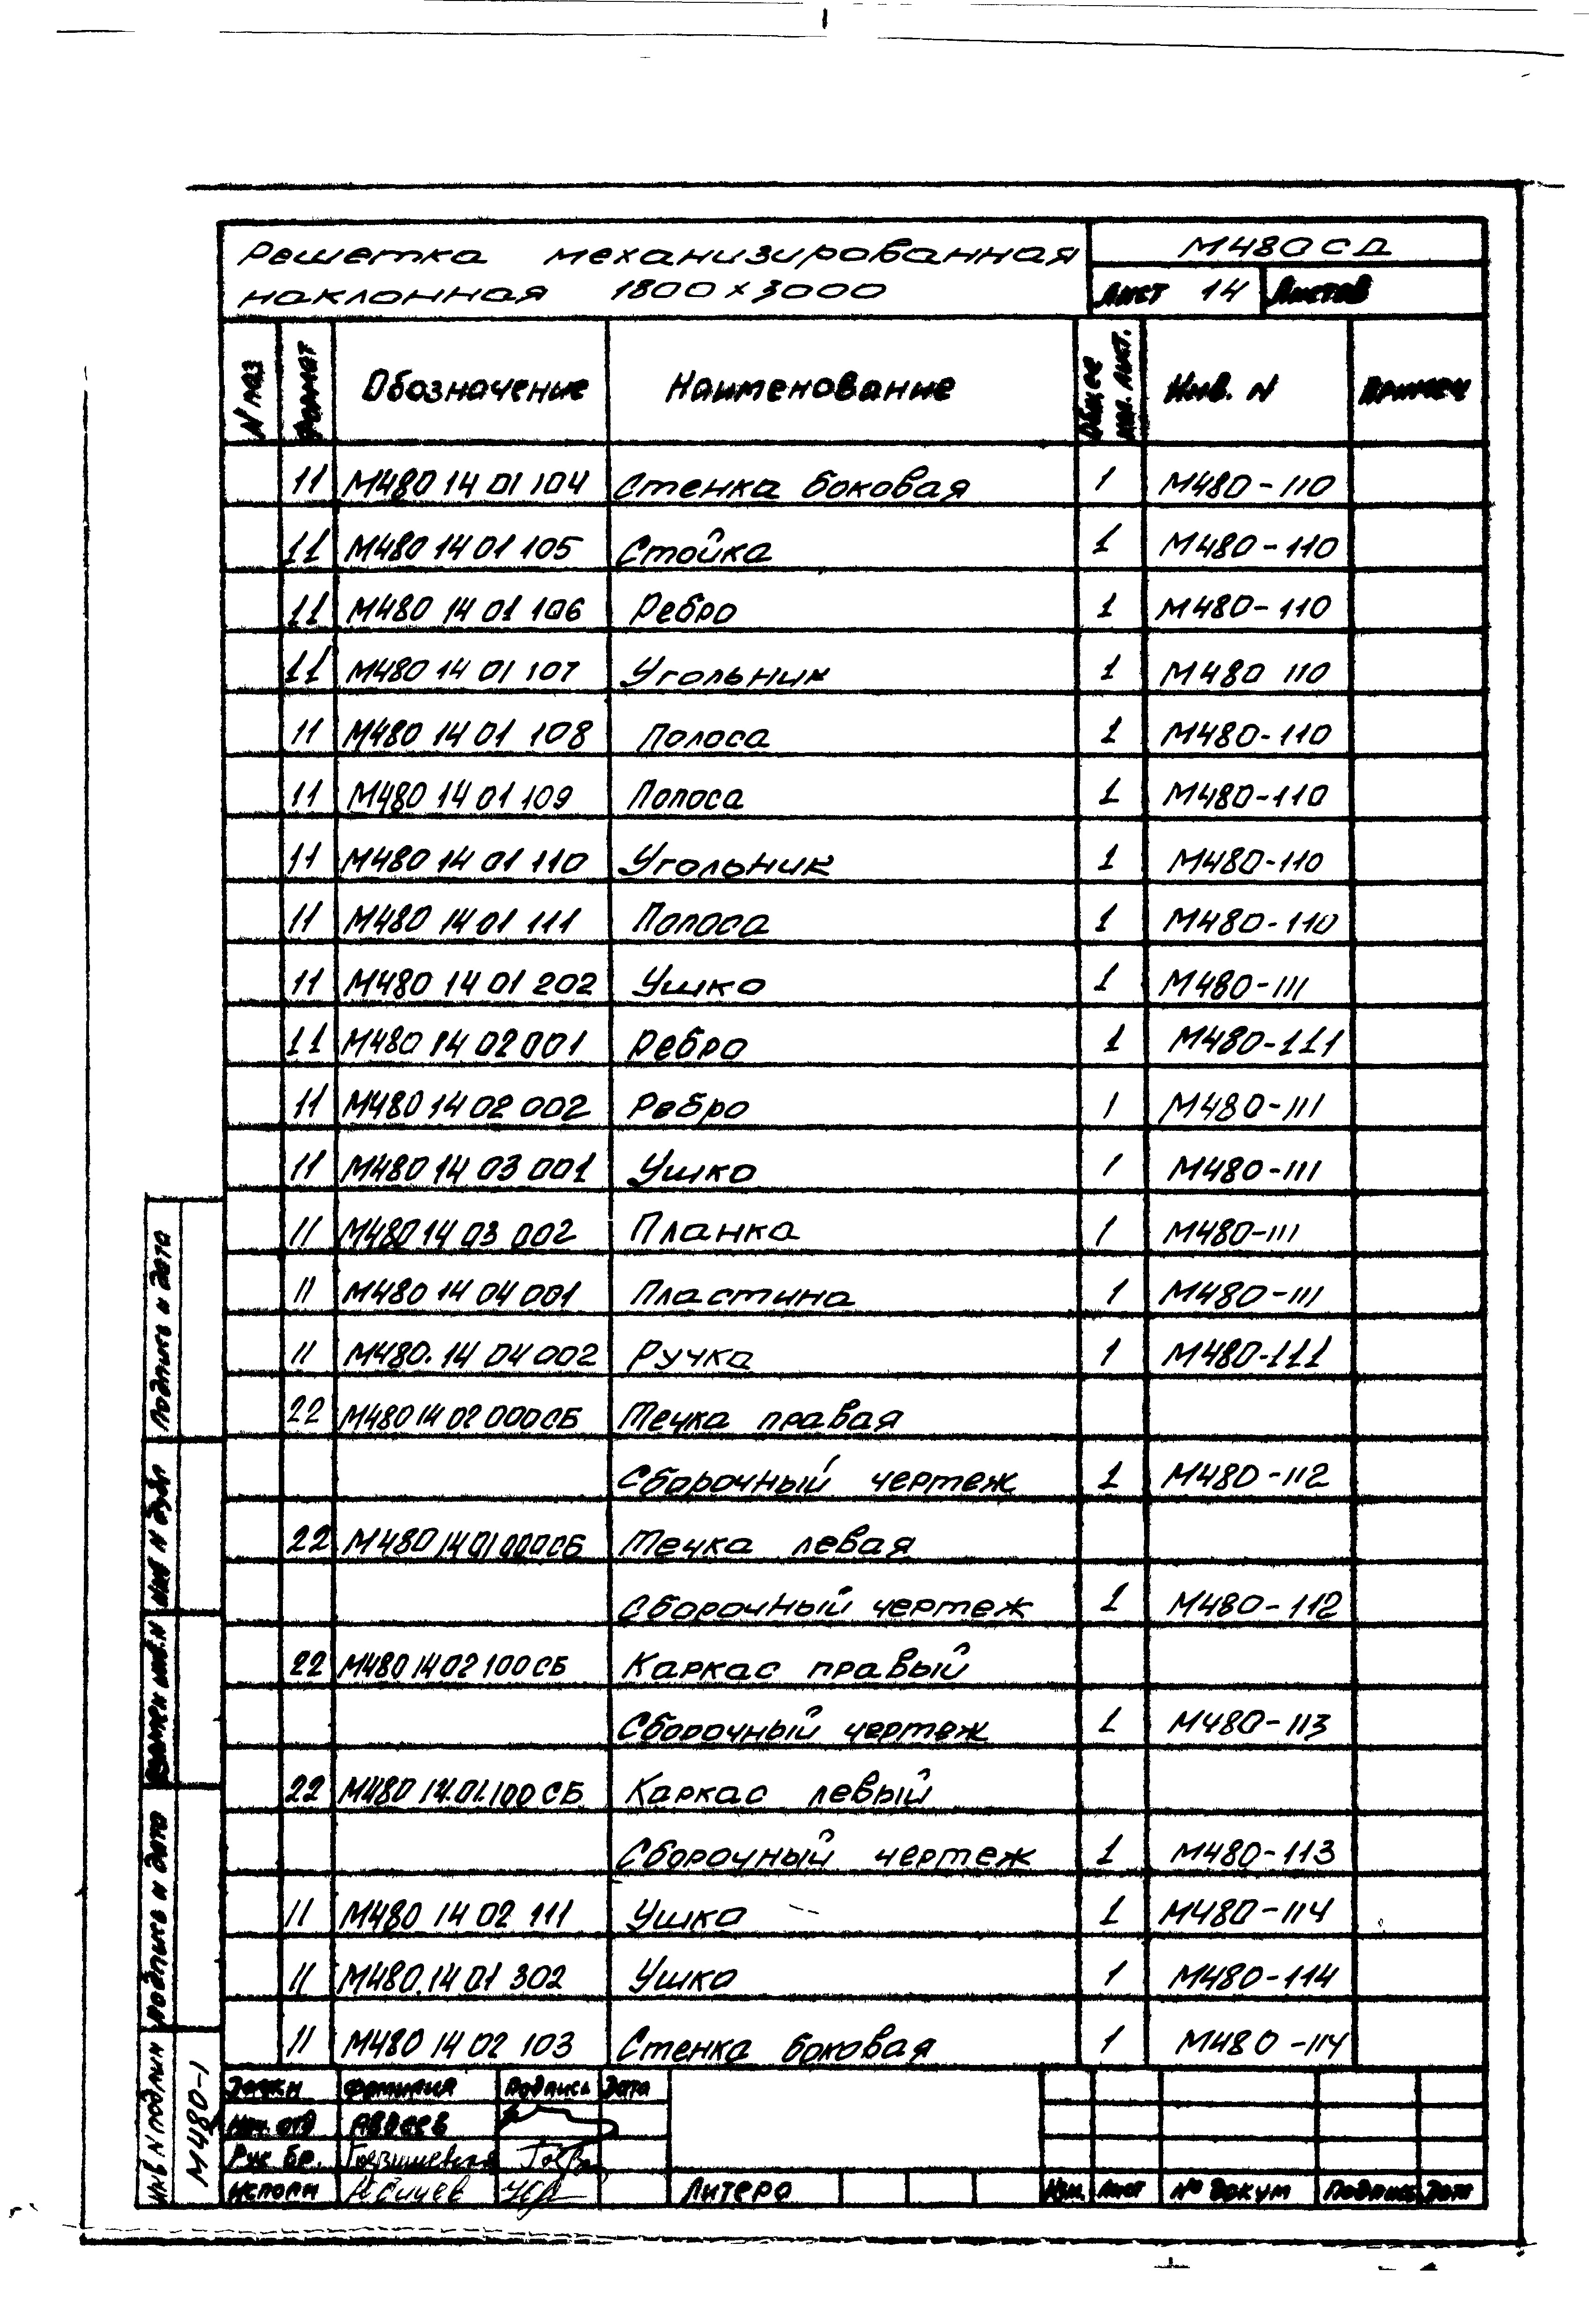 Решетка механизированная
наклонная 1800 х 3000
М480СД
Лист 14 Листов
N поз Формат Обозначение Наименование Общее кол. лист. Инв. N Примеч
11 М480 14 01 104 Стенка боковая 1 М480-110
11 М480 14 01 105 Стойка 1 М480-110
11 М480 14 01 106 Ребро 1 М480-110
11 М480 14 01 107 Угольник 1 М480 110
11 М480 14 01 108 Полоса 1 М480-110
11 М480 14 01 109 Полоса 1 М480-110
11 М480 14 01 110 Угольник 1 М480-110
11 М480 14 01 111 Полоса 1 М480-110
11 М480 14 01 202 Ушко 1 М480-111
11 М480 14 02 001 Ребро 1 М480-111
11 М480 14 02 002 Ребро 1 М480-111
11 М480 14 03 001 Ушко 1 М480-111
11 М480.14 03 002 Планка 1 М480-111
11 М480 14 04 001 Пластина 1 М480-111
11 М480. 14 04 002 Ручка 1 М480-111
22 М480 14 02 000СБ Течка правая
Сборочный чертеж 1 М480-112
22 М480 14 01 000СБ Течка левая
Сборочный чертеж 1 М480-112
22 М480 14 02 100 СБ Каркас правый
Сборочный чертеж 1 М480-113
22 М480 14.01.100 СБ Каркас левый
Сборочный чертеж 1 М480-113
11 М480 14 02 111 Ушко 1 М480-114
11 М480.14 01 302 Ушко 1 М480-114
11 М480 14 02 103 Стенка боковая 1 М480-114
Подпись и дата
Инв N дубл
Взамен инв. N
Подпись и дата
Инв N подлин М480-1
Должн Фамилия Подпись Дата
Нач. отд Авдеев
Рук бр.
Исполн
Литера
Изм. Лист № докум Подпись Дата